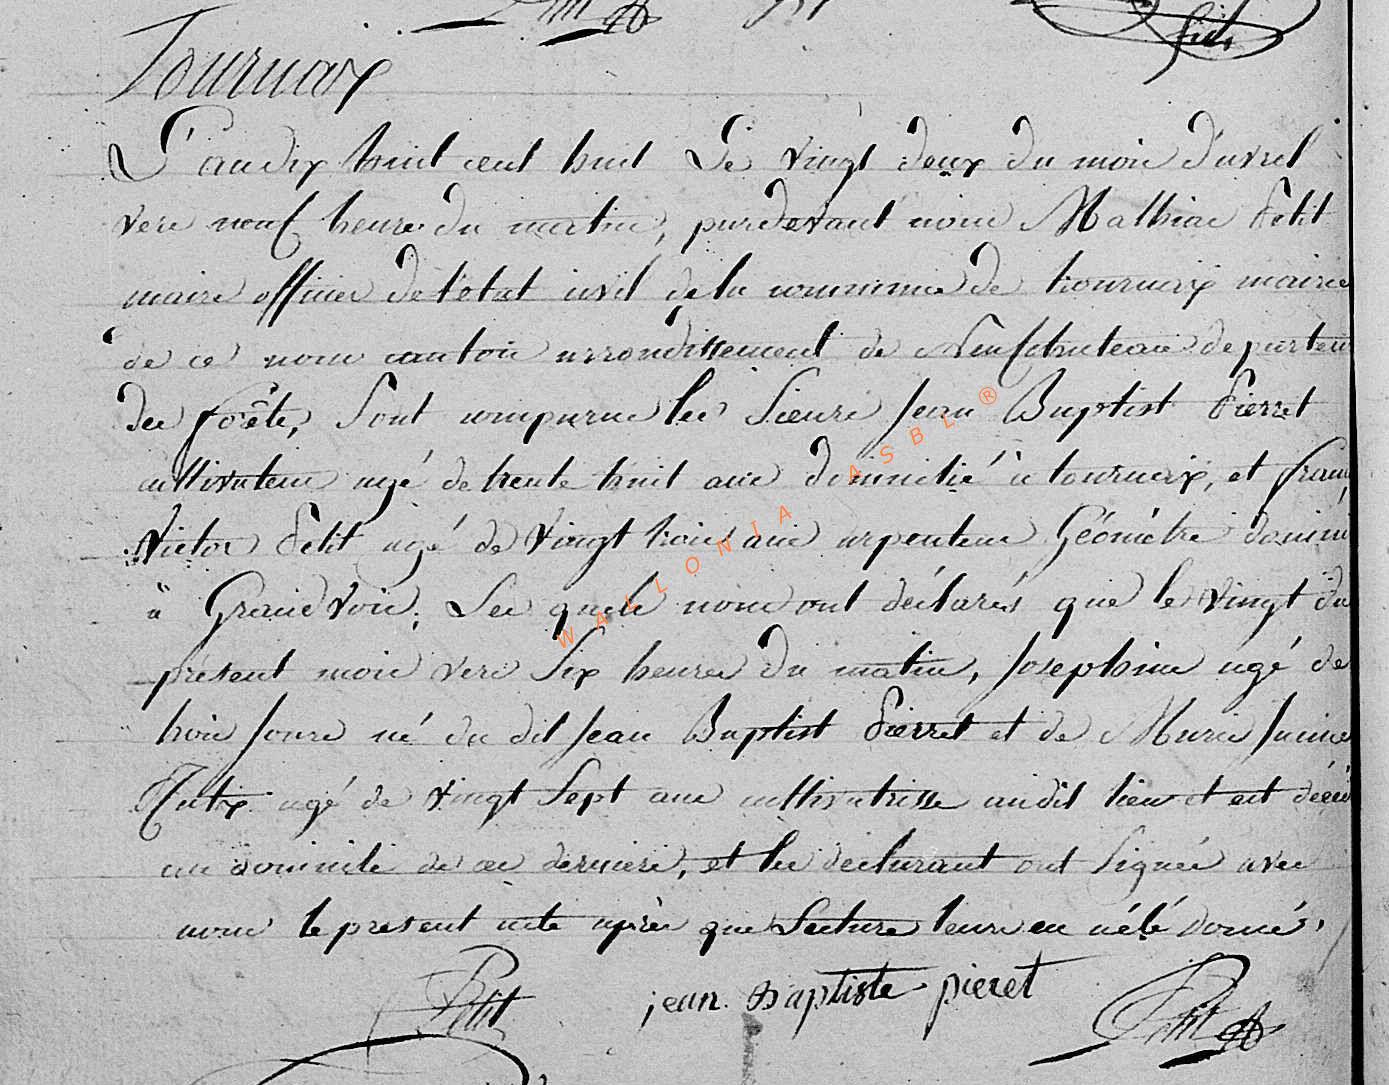 Tournaix
L'an dix huit cent huit Le vingt deux du mois d'avril
vers neuf heures du matin, pardevant nous Mathias Petit
maire officier de l'état civil de la commune de tournaix mairie
de ce nom canton arrondissement de Neufchateau departem
des forêts, Sont comparus les Sieurs Jean Baptist Pierret
cultivateur agé de trente huit ans domicilié à tournaix, et frans
Victor Petit agé de vingt trois ans arpenteur Géométre domici
à Grandvoir, Les quels nous ont déclarés que le vingt du
présent mois vers Six heures du matin, Josephine agé de
trois jours né du dit Jean Baptist Pierret et de Marie Jeanne
agé de vingt Sept ans cultivatrisse au dit lieu et est décéd
au domicile de ce derniere, et les declarant ont Signés avec
nous le present acte après que Lecture leurs en a été donné,
Petit jean Baptiste pieret Petit
WALLONIA ASBL ®